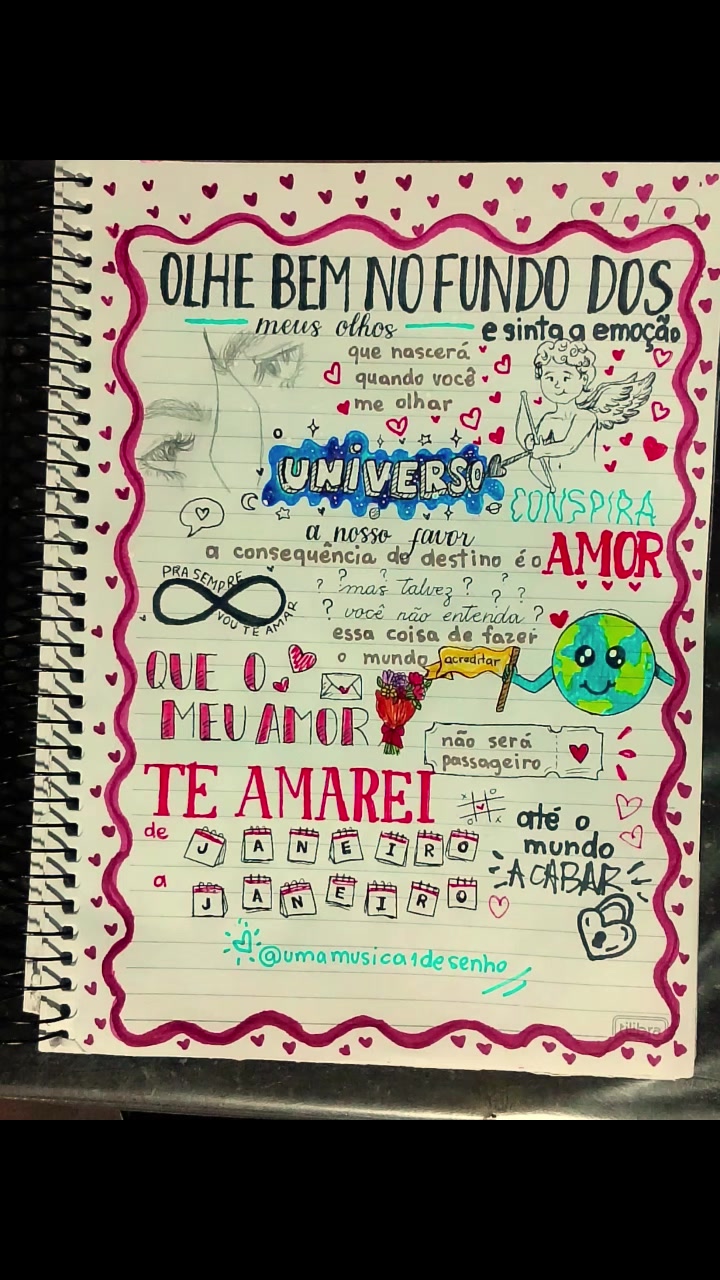 OLHE BEM NO FUNDO DOS
meus olhos e sinta a emoção
que nascerá
quando você
me olhar
UNIVERSO
CONSPIRA
a nosso favor
a consequência do destino é o AMOR
PRA SEMPRE
VOU TE AMAR
? ? mas talvez ? ?
? você não entenda ? ? ?
essa coisa de fazer
o mundo acreditar
QUE O
MEU AMOR
não será
passageiro
TE AMAREI
de JANEIRO
a JANEIRO
até o
mundo
ACABAR
@umamusica1desenho
tilibra